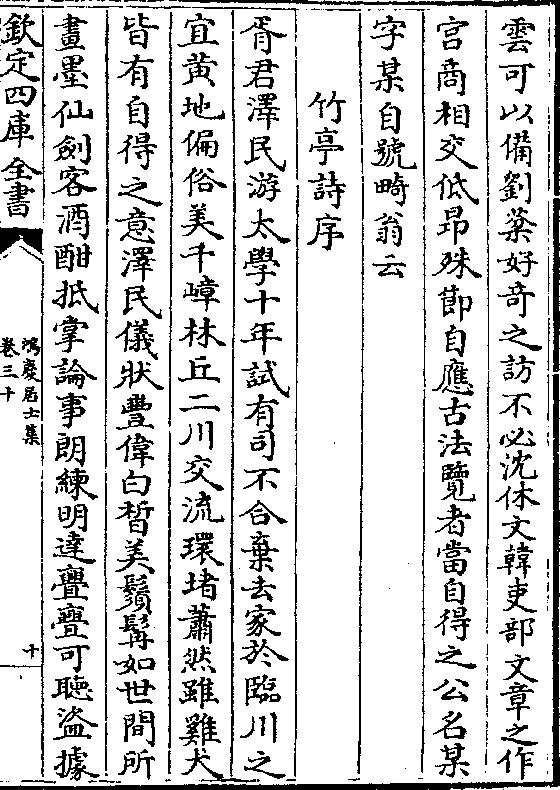 雲可以備劉棻好奇之訪不必沈休文韓吏部文章之作
宫商相交低昂殊節自應古法覽者當自得之公名某
字某自號畸翁云
竹亭詩序
胥君澤民游太學十年試有司不合棄去家於臨川之
宜黄地偏俗美千嶂林丘二川交流環堵蕭然雖雞犬
皆有自得之意澤民儀狀豐偉白晳美鬚髯如世間所
畫墨仙劍客酒酣抵掌論事朗練明達亹亹可聽盜據
欽定四庫全書
鴻慶居士集
卷三十
十